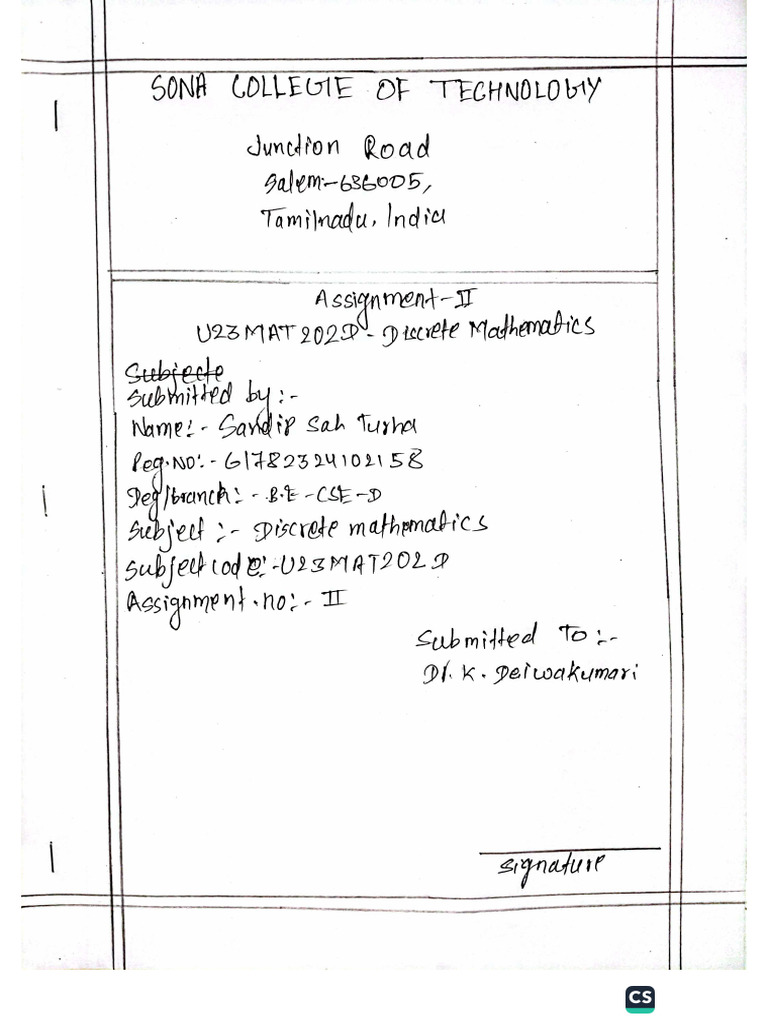 SONA COLLEGE OF TECHNOLOGY
Junction Road
Salem:-636005,
Tamilnadu, India
Assignment-II
U23MAT202D - Discrete Mathematics
Subjecte
Submitted by:-
Name:- Sandip Sah Turha
Reg.No:- 61782324102158
Deg/branch:- B.E-CSE-D
Subject:- Discrete mathematics
Subject code:-U23MAT202D
Assignment.no:- II
Submitted To:-
Dr. K. Deiwakumari
Signature
CS